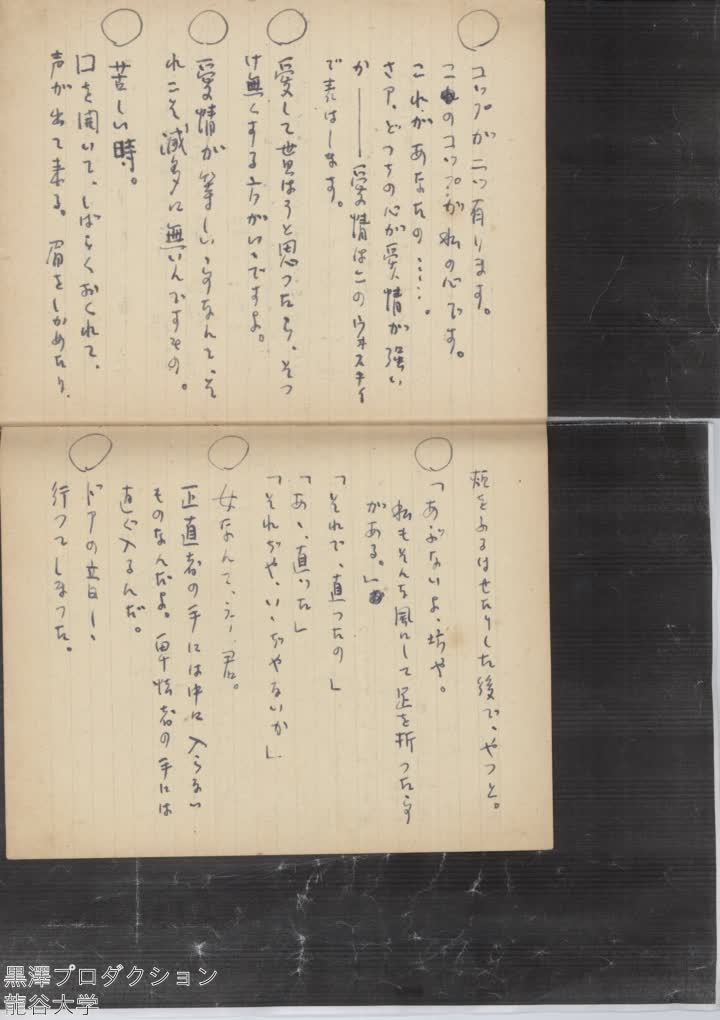 ○
コップが二ツ有ります。
このコップが私の心です。
これがあなたの……。
さア、どつちの心が愛情が強い
か――愛情はこのウヰスキイ
で表はします。
○
愛して貰はうと思つたら、そつ
け無くする方がいゝですよ。
○
愛情が等しい、なんて、そ
れこそ滅多に無いんですもの。
○
苦しい時。
口を開いて、しばらくおくれて、
声が出て来る。眉をしかめたり、
頬をふるはせたりした後で、やつと。
○
「あぶないよ、坊や。
私もそんな風にして足を折つた
がある。」
「それで、直つたの」
「あゝ、直つた」
「それぢや、いゝぢやないか」
○
女なんて、君。
正直者の手には中に入らない
ものなんだよ。卑怯者の手には
直ぐ入るんだ。
○
ドアの音――、
行つてしまつた。
黒澤プロダクション
龍谷大学